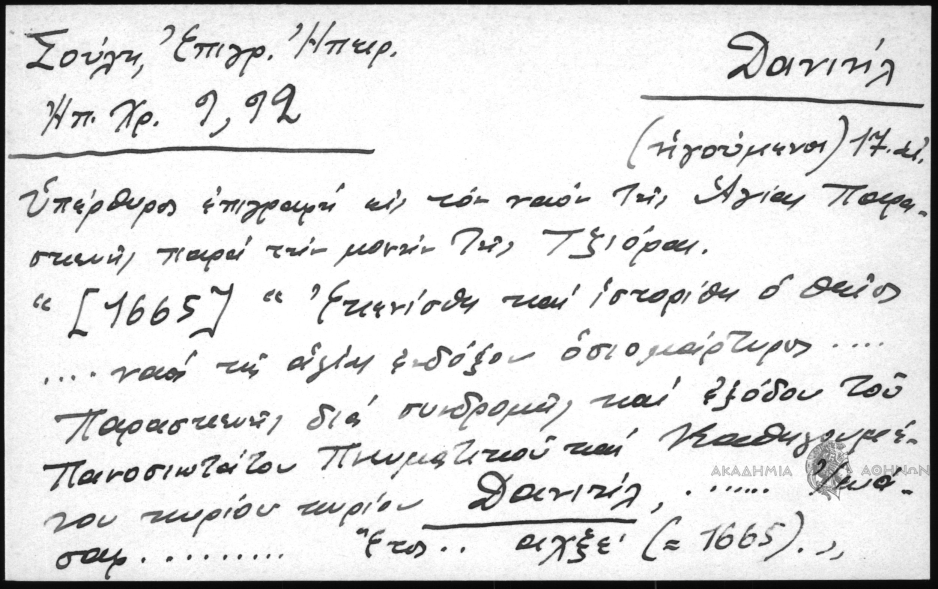 Σούλη, Ἐπιγρ. Ἠπειρ.
Δανιήλ
Ἠπ. Χρ. 9, 92
(ἡγούμενος) 17. αἰ.
Ὑπέρθυρος ἐπιγραφή εἰς τόν ναόν τῆς Ἁγίας Παρα-
σκευῆς παρά τήν μονήν τῆς Τζιόρας.
“ [1665] “ Ἐκενίσθη καί ἱστορίθη ὁ θεῖος
.... ναός τῆς ἁγίας ἐνδόξου ὁσιομάρτυρος ....
Παρασκευῆς διά συνδρομῆς καί ἐξόδου τοῦ
Πανοσιωτάτου Πνευματικοῦ καί Καθηγουμέ-
νου κυρίου κυρίου Δανιήλ, .......
σαρ ......... Ἔτος .. αχξε' (= 1665) . „
ΑΚΑΔΗΜΙΑ ΑΘΗΝΩΝ